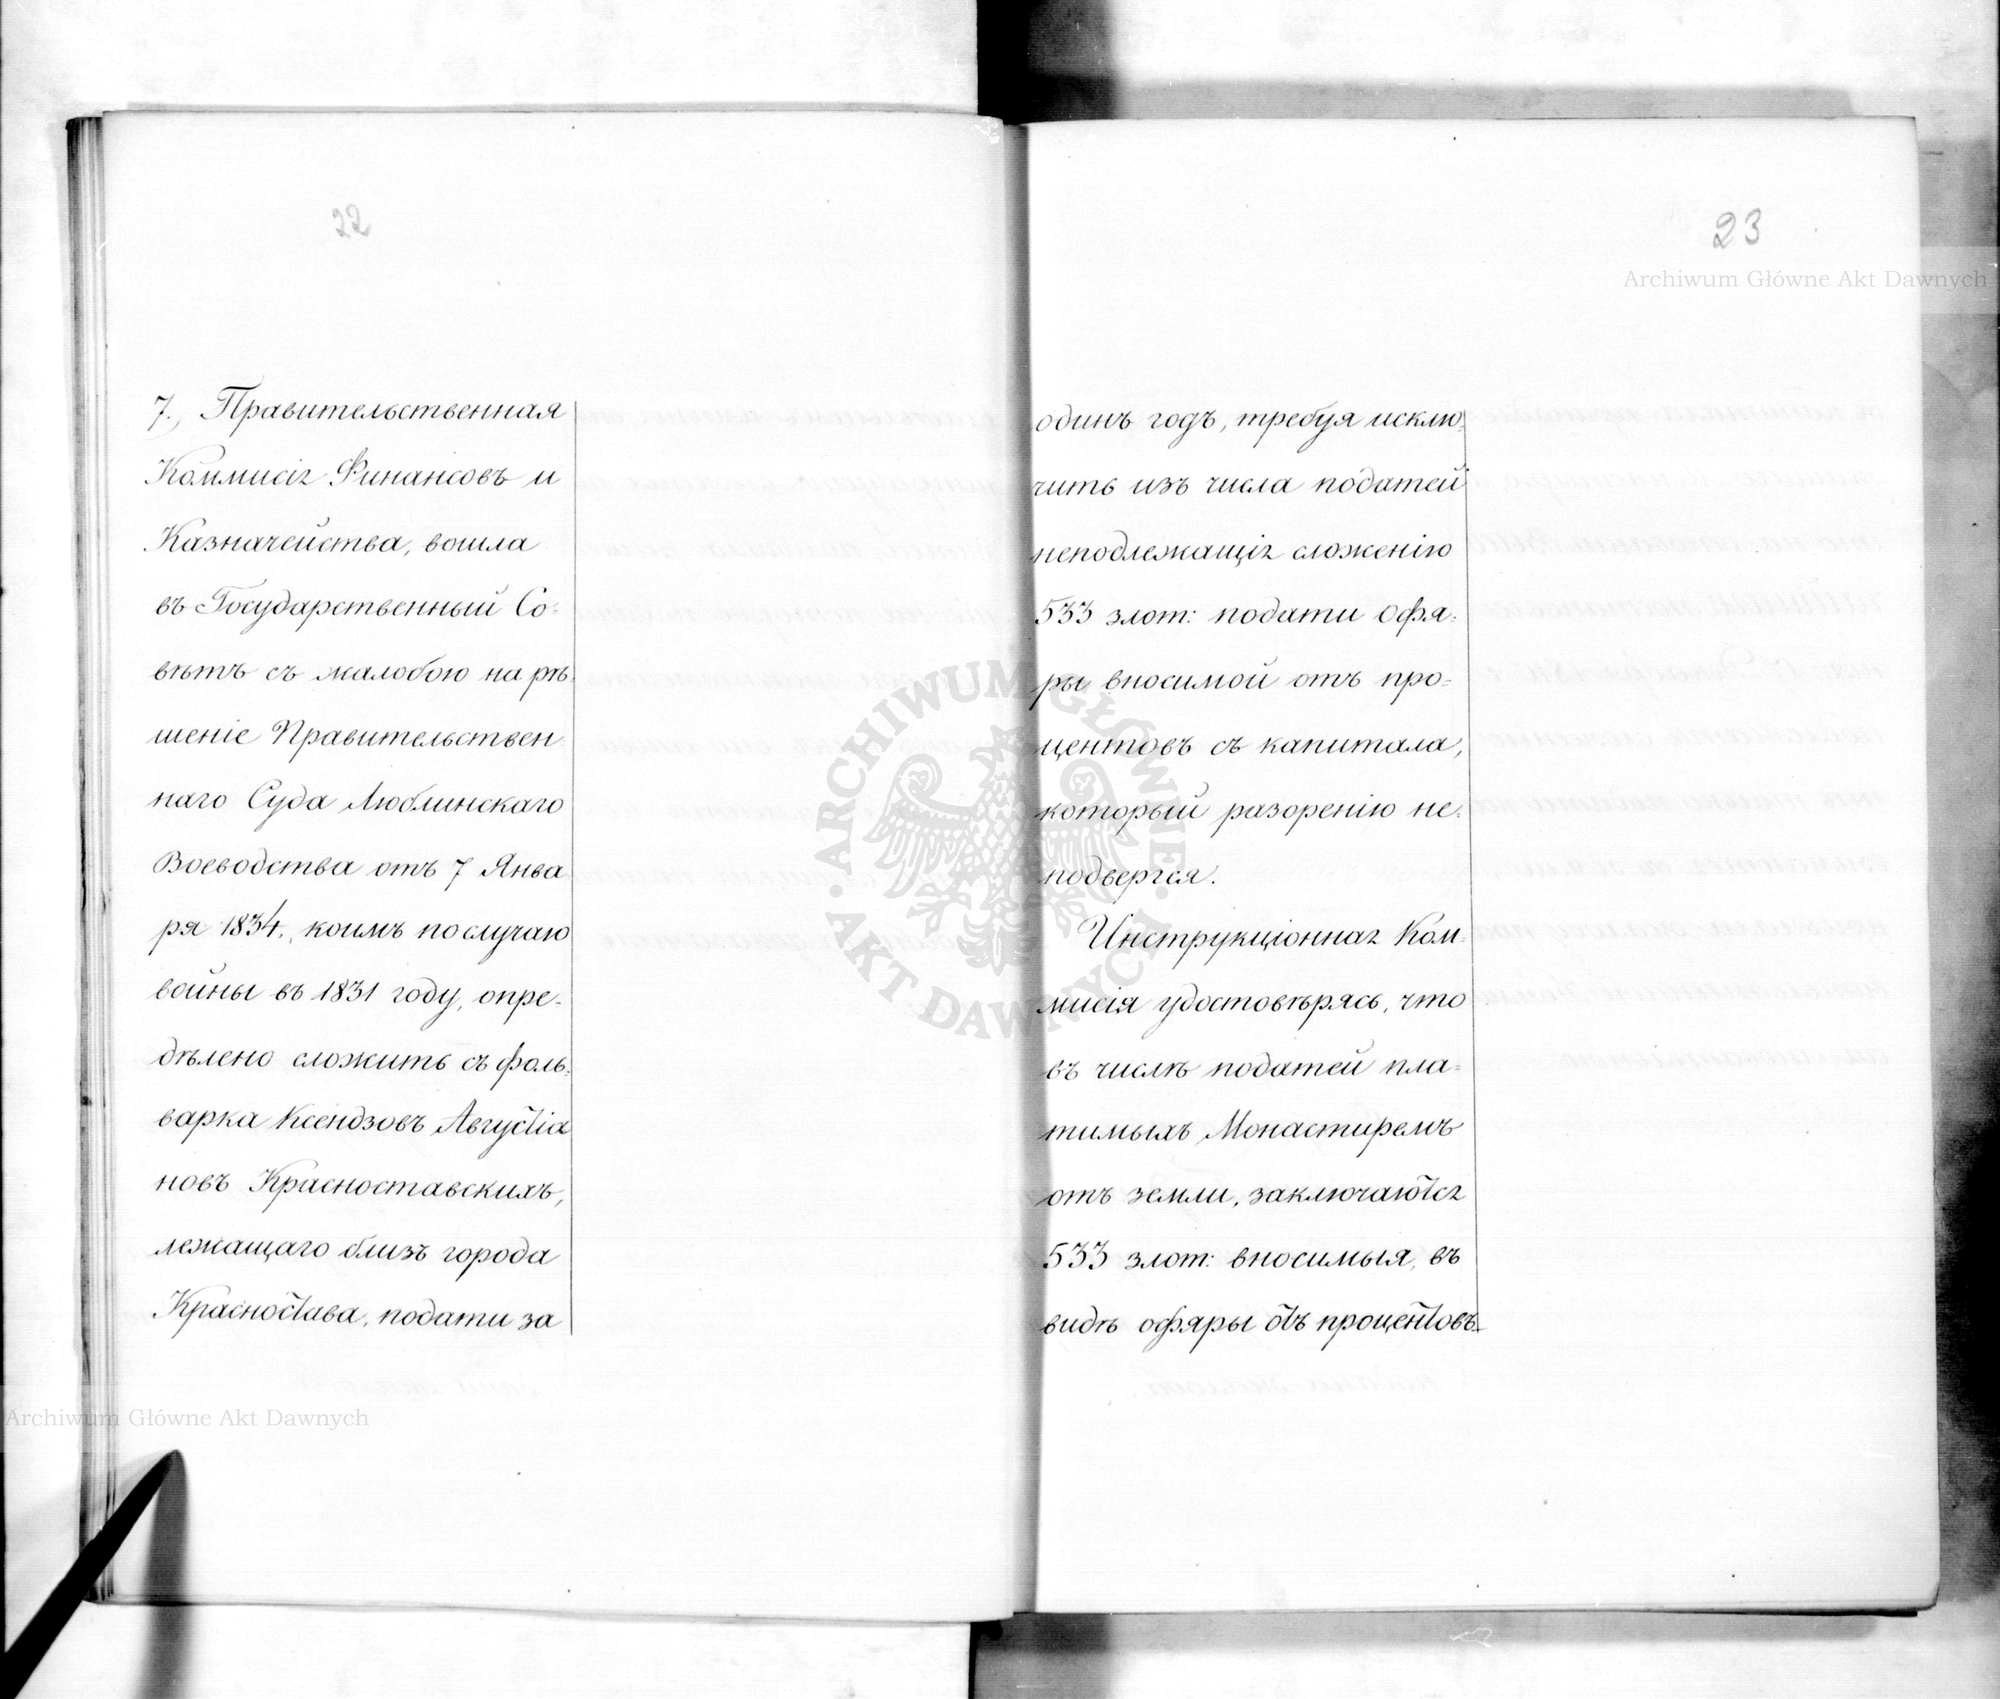 22
7., Правительственная
Коммисія Финансовъ и
Казначейства, вошла
въ Государственный Со-
вѣтъ съ жалобою на рѣ-
шеніе Правительствен
наго Суда Люблинскаго
Воеводства отъ 7 Янва
ря 1834., коимъ по случаю
войны въ 1831 году, опре-
дѣлено сложить съ фоль-
варка Ксендзовъ Августіа
новъ Красноставскихъ,
лежащаго близъ города
Красностава, подати за
23
одинъ годъ, требуя исклю-
чить изъ числа податей
неподлежащія сложенію
533 злот: подати Офя-
ры вносимой отъ про-
центовъ съ капитала,
который разоренію не-
подвергся.
Инструкціонная Ком-
мисія удостовѣрясь, что
въ числѣ податей пла-
тимыхъ Монастиремъ
отъ земли, заключаются
533 злот: вносимыя, въ
видѣ офяры отъ процентовъ
Archiwum Główne Akt Dawnych
ARCHIWUM GŁÓWNE AKT DAWNYCH
Archiwum Główne Akt Dawnych